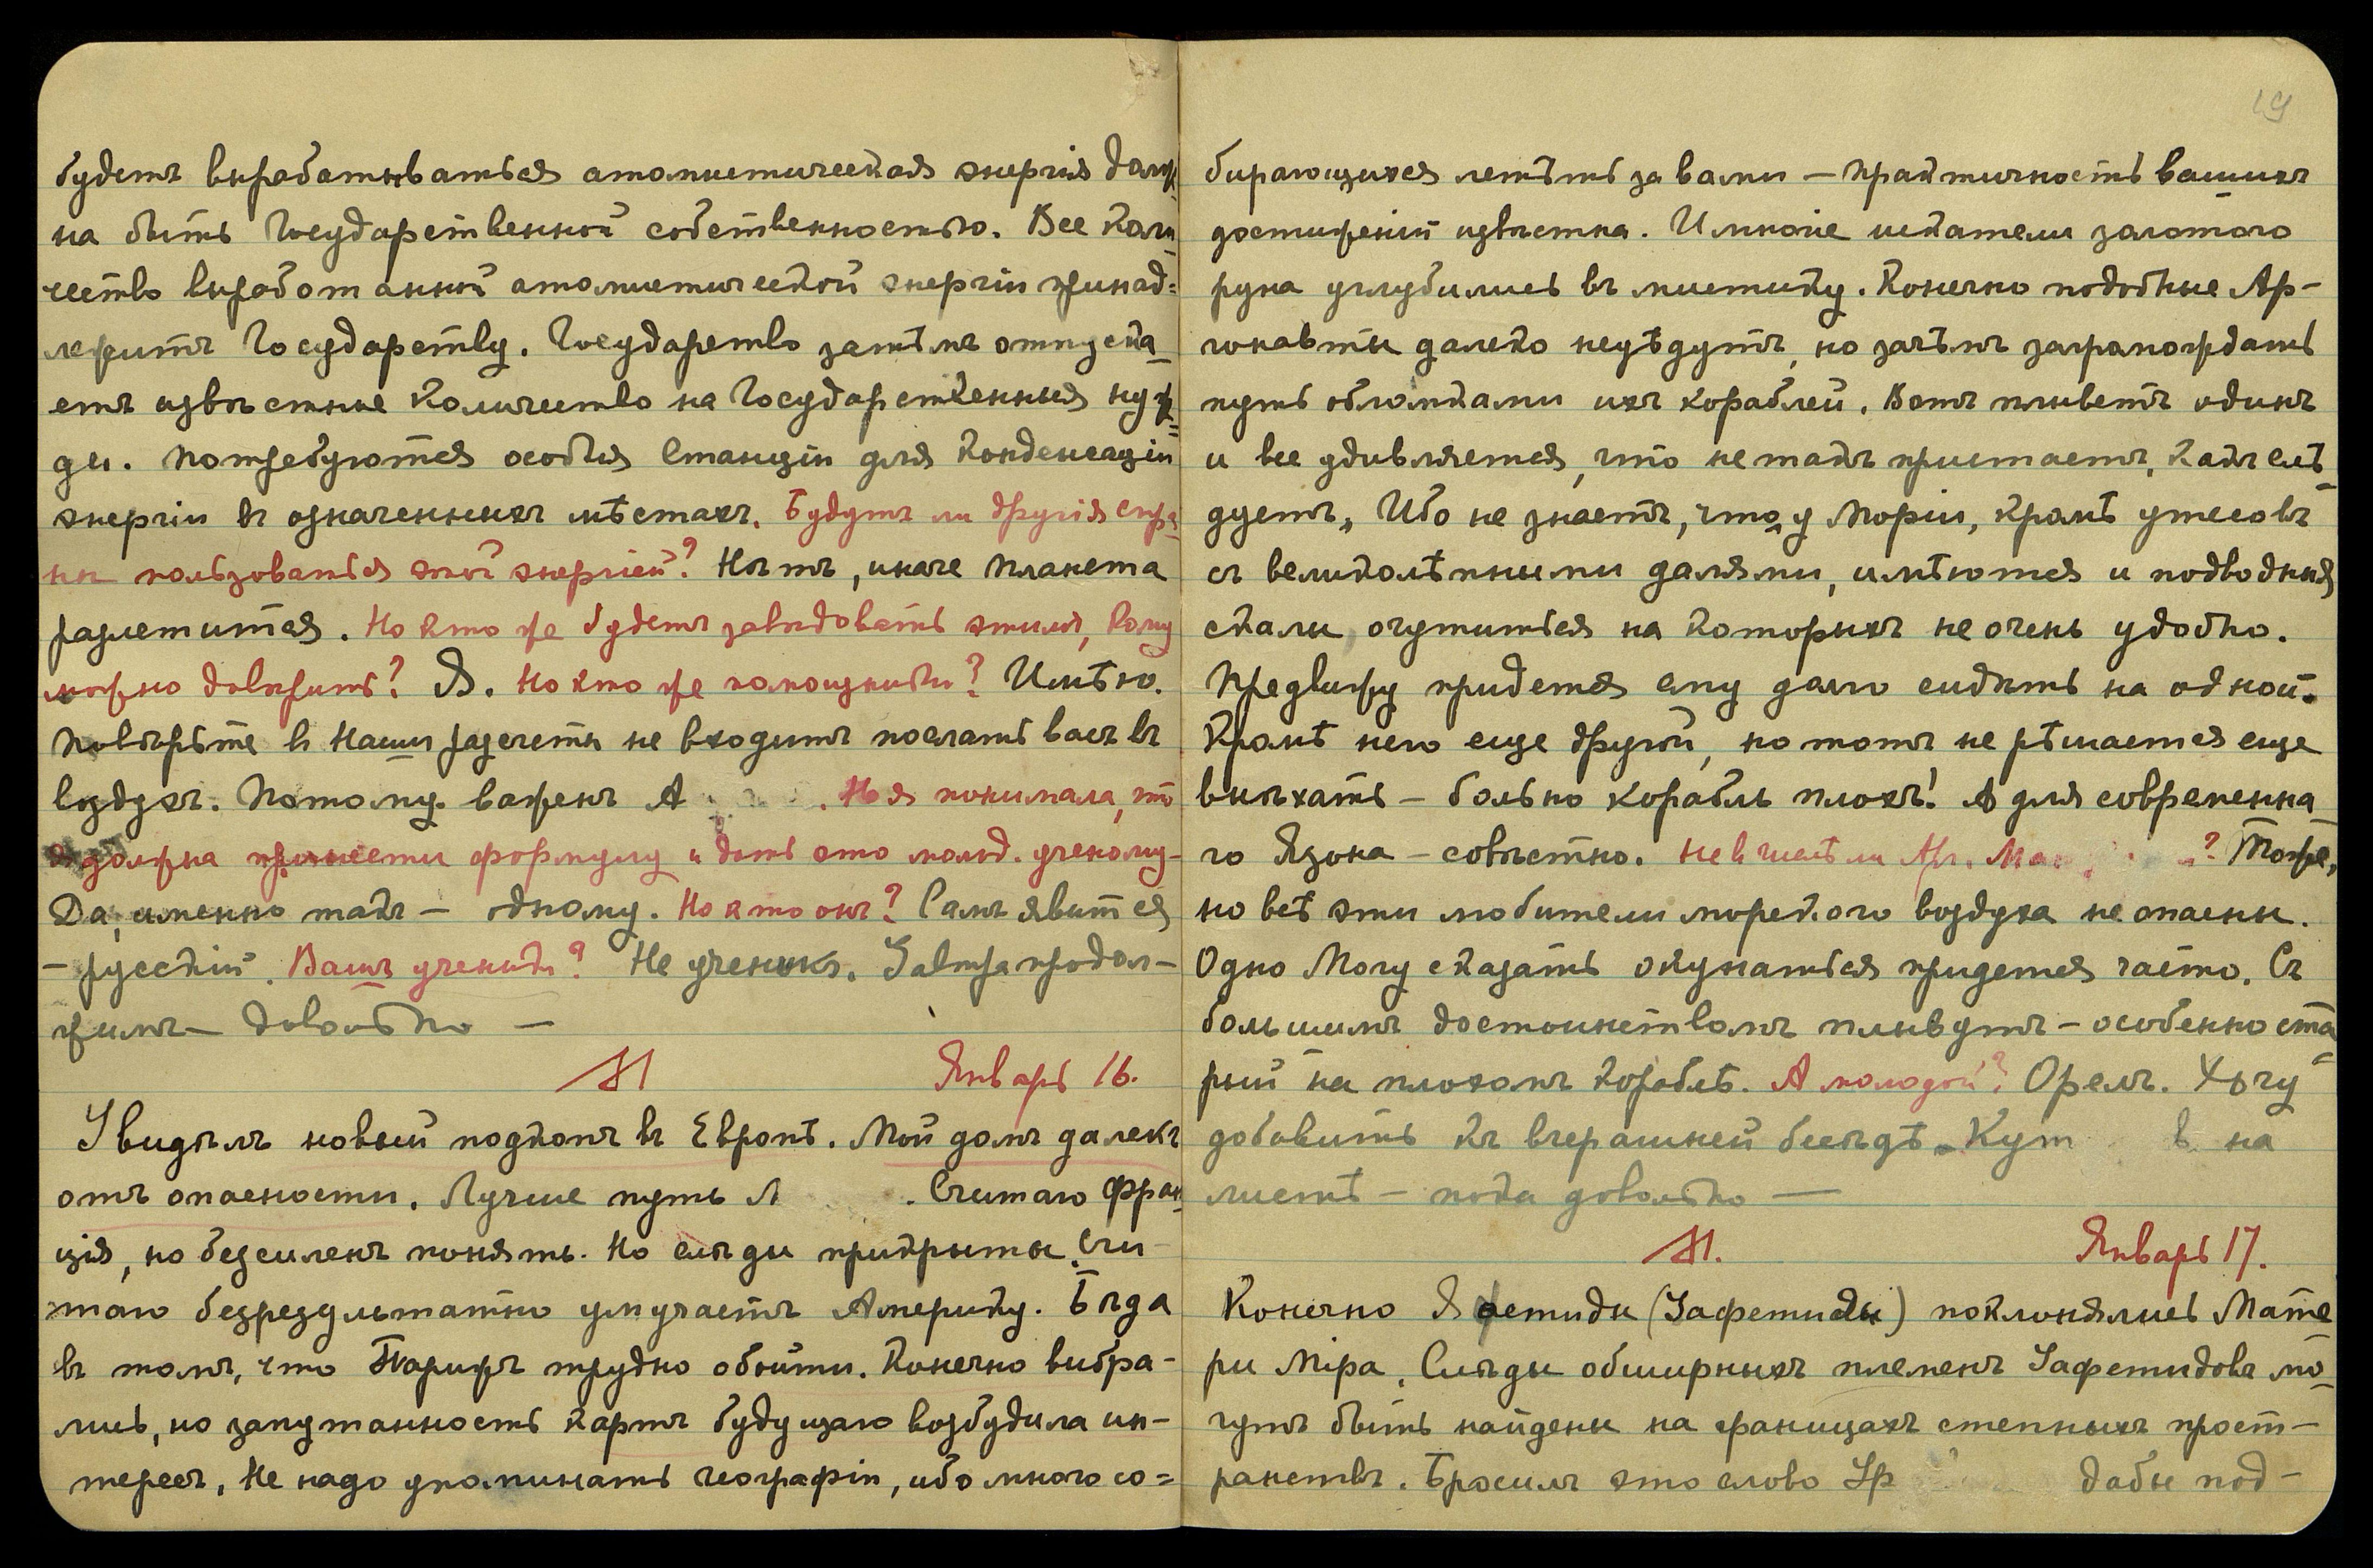 будетъ вырабатываться атомистическая энергія долж-
на быть Государственной собственностью. Все коли-
чество выработанной атомистической энергіи принад-
лежитъ Государству. Государство затѣмъ отпуска-
етъ извѣстные количество на Государственныя нуж-
ды. Потребуются особыя Станціи для конденсаціи
энергіи въ означенныхъ мѣстахъ. Будутъ ли другія стра-
ны пользоваться этой энергіей? Нѣтъ, иначе планета
разлетится. Но кто же будетъ завѣдовать этимъ, кому
можно довѣрить? Я. Но кто же помощники? Имѣю.
Повѣрьте в Наши разсчеты не входитъ послать васъ въ
воздухъ. Потому важенъ А . Но я понимала, что
я должна принести формулу и дать это молод. ученому-
Да, именно такъ — одному. Но кто онъ? Самъ явится
— русскій. Вашъ ученикъ? Не ученикъ. Завтра продол-
жимъ — довольно —
Январь 16.
Увидѣлъ новый подкопъ въ Европѣ. Мой домъ далекъ
отъ опасности. Лучше путь Л . Считаю Фран-
ція, но безсиленъ понять. Но слѣды прикрыты. Счи-
таю безрезультатно умучаетъ Америку. Бѣда
въ томъ, что Парижъ трудно обойти. Конечно выбра-
лись, но запутанность картъ будущаго возбудила ин-
тересъ. Не надо упоминать географіи, ибо много со=
19
бирающихся летѣть за вами — практичность вашихъ
достиженій извѣстна. И многіе искатели золотого
руна углубились въ мистику. Конечно подобные Ар-
гонавты далеко неуѣдутъ, но зачѣмъ загромождать
путь обломками ихъ кораблей. Вотъ плыветъ одинъ
и все удивляется, что не такъ пристаетъ, какъ слѣ-
дуетъ„ Ибо не знаетъ, что у Моріи, кромѣ утесовъ
съ великолѣпными далями, имѣются и подводныя
скалы, очутиться на которыхъ не очень удобно.
Предвижу придется ему долго сидѣть на одной.
Кромѣ него еще другой, но тотъ не рѣшается еще
выѣхать — больно корабль плохъ! А для современна-
го Язона — совѣстно. Не въ числѣ ли Ма ? Тоже,
но всѣ эти любители морского воздуха не опасны.
Одно Могу сказать окунаться придется часто. Съ
большимъ достоинствомъ плывутъ — особенно ста-
рый на плохомъ кораблѣ. А молодой? Орелъ. Хочу
добавить къ вчерашней бесѣдѣ Кут в на
листѣ — пока довольно —
Январь 17.
Конечно Яфетиды (Зафетиды) поклонялись Мате-
ри Міра. Слѣды обширныхъ племенъ Зафетидовъ мо-
гутъ быть найдены на границахъ степныхъ прост-
ранствъ. Бросилъ это слово Ур дабы под-